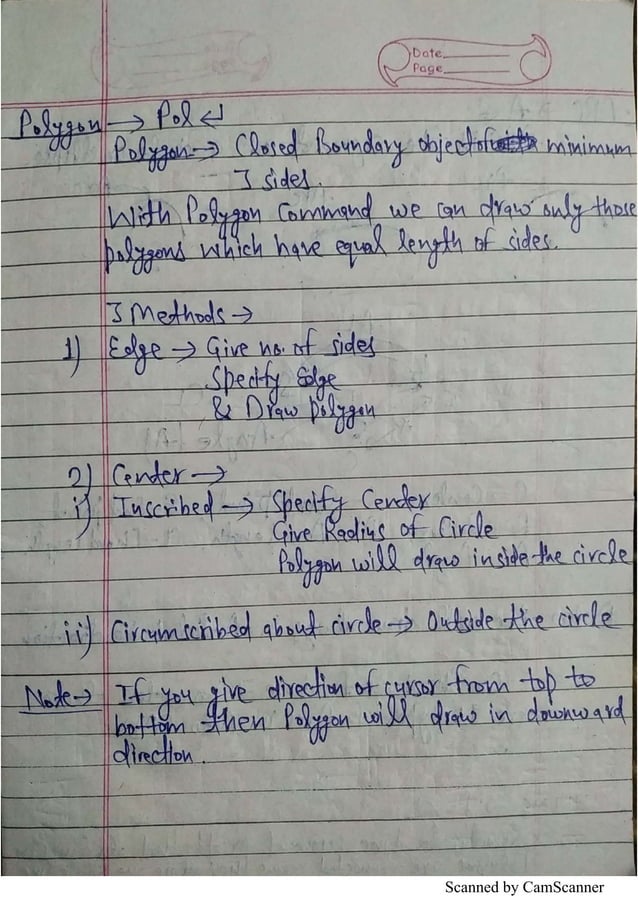 Date
Page
Polygon → Pol ↵
Polygon → Closed Boundary object of minimum
3 sides.
With Polygon Command we can draw only those
polygons which have equal length of sides.
3 Methods →
1) Edge → Give no. of sides
Specify Edge
& Draw polygon
2) Cender →
i) Inscribed → Specify Cender
Give Radius of Circle
Polygon will draw inside the circle
ii) Circumscribed about circle → Outside the circle
Note → If you give direction of cursor from top to
bottom then Polygon will draw in downward
direction.
Scanned by CamScanner